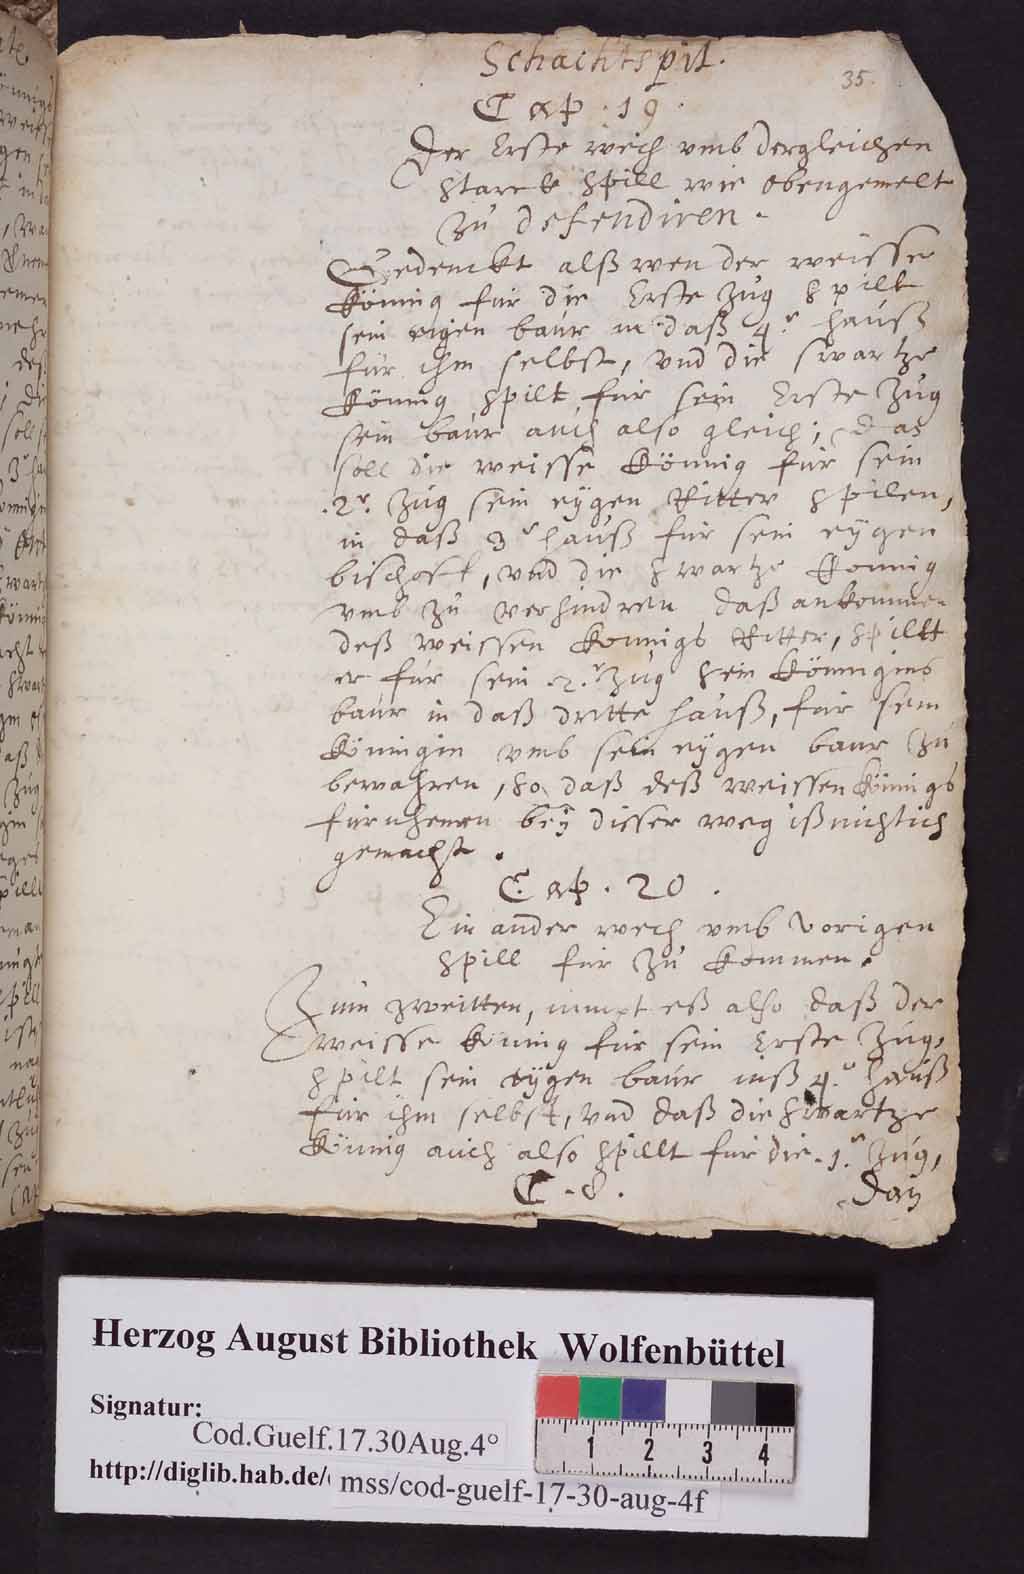 Schachtspil.
35.
Cap. 19.
Der Erste weich vmb dergleichen
starcke spill wie obengemelt
zu defendiren.
Gedenckt alß wen der weisse
Könnig für die Erste zug spilt
sein eigen baur in daß 4.r hauß
für ihm selbst, vnd die swartze
Könnig spilt, für sein Erste zug
sein baur auch also gleich; das
soll die weisse Könnig für sein
.2r. zug sein eygen Ritter spilen,
in daß 3r hauß für sein eygen
bischoff, vnd die swartze Konnig
vmb zu verhindren daß ankommen
deß weissen Konnigs Ritter, spillt
er für sein .2.r zug sein Könnigins
baur in daß dritte hauß, für sein
Königin vmb sein eygen baur zu
bewahren, so daß deß weissen Könnigs
fürnhemen beÿ disser weg iß nichtich
gemacht.
Cap. 20.
Ein ander wech vmb vorigen
spill für zu kommen.
Zum zweitten, nimpt eß also daß der
weisse Könnig für sein Erste zug,
spilt sein eygen baur inß 4.r hauß
für ihm selbst, vnd daß die swartze
Könnig auch also spillt für die .1.r zug,
C. 8. dan
Herzog August Bibliothek Wolfenbüttel
Signatur:
Cod.Guelf.17.30Aug.4°
http://diglib.hab.de/ mss/cod-guelf-17-30-aug-4f
1 2 3 4